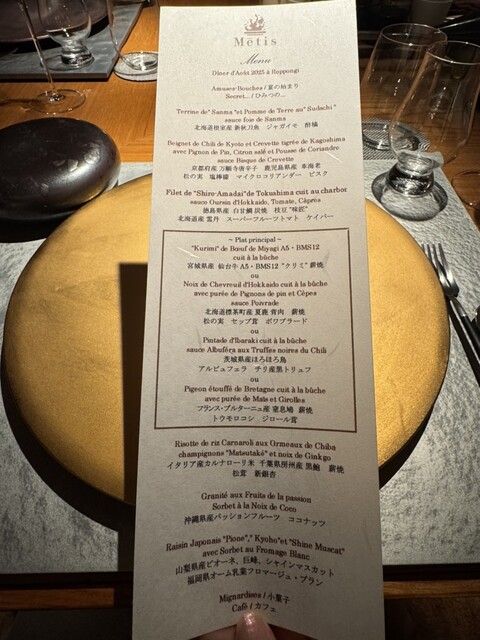 Métis
Menu
Dîner d'Août 2025 à Roppongi
Amuses-Bouches / 宴の始まり
Secret... / ひみつの...
Terrine de "Sanma "et Pomme de Terre au" Sudachi "
sauce foie de Sanma
北海道根室産 新秋刀魚 ジャガイモ 酢橘
Beignet de Chili de Kyoto et Crevette tigrée de Kagoshima
avec Pignon de Pin, Citron salé et Pousse de Coriandre
sauce Bisque de Crevette
京都府産 万願寺唐辛子 鹿児島県産 車海老
松の実 塩檸檬 マイクロコリアンダー ビスク
Filet de "Shiro-Amadai"de Tokushima cuit au charbon
sauce Oursin d'Hokkaido, Tomate, Câprès
徳島県産 白甘鯛 炭焼 枝豆 "味匠"
北海道産 雲丹 スーパーフルーツトマト ケイパー
~ Plat principal ~
"Kurimi" de Bœuf de Miyagi A5・BMS12
cuit à la bûche
宮城県産 仙台牛 A5・BMS12 "クリミ" 薪焼
ou
Noix de Chevreuil d'Hokkaido cuit à la bûche
avec purée de Pignons de pin et Cèpes
sauce Poivrade
北海道標茶町産 夏鹿 背肉 薪焼
松の実 セップ茸 ポワブラード
ou
Pintade d'Ibaraki cuit à la bûche
sauce Albuféra aux Truffes noires du Chili
茨城県産ほろほろ鳥
アルビュフェラ チリ産黒トリュフ
ou
Pigeon étouffé de Bretagne cuit à la bûche
avec purée de Maïs et Girolles
フランス・ブルターニュ産 窒息鳩 薪焼
トウモロコシ ジロール茸
Risotte de riz Carnaroli aux Ormeaux de Chiba
champignons "Matsutaké" et noix de Ginkgo
イタリア産カルナローリ米 千葉県房州産 黒鮑 薪焼
松茸 新銀杏
Granité aux Fruits de la passion
Sorbet à la Noix de Coco
沖縄県産パッションフルーツ ココナッツ
Raisin Japonais "Pione"," Kyoho"et "Shine Muscat"
avec Sorbet au Fromage Blanc
山梨県産ピオーネ、巨峰、シャインマスカット
福岡県オーム乳業フロマージュ・ブラン
Mignardises / 小菓子
Café / カフェ